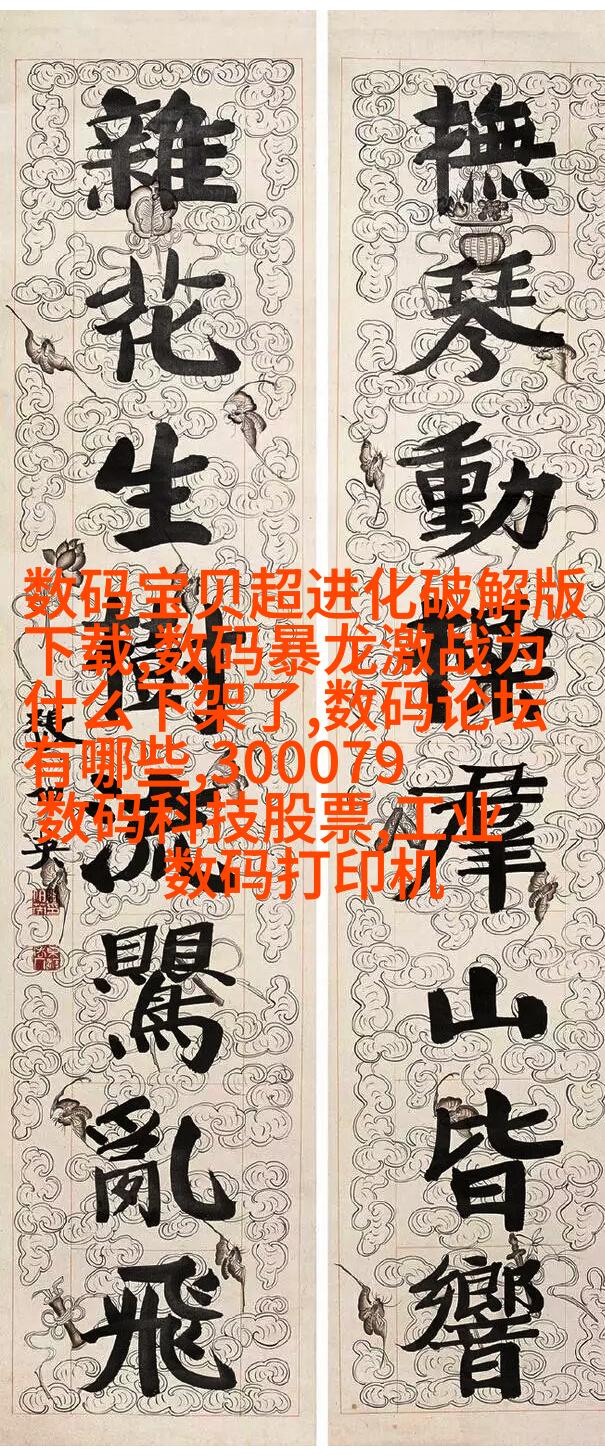 撫琴動操羣山皆響
雜花生樹流鸎亂飛
数码宝贝超进化破解版
下载,数码暴龙激战为
什么下架了,数码论坛
有哪些,300079
数码科技股票,工业
数码打印机